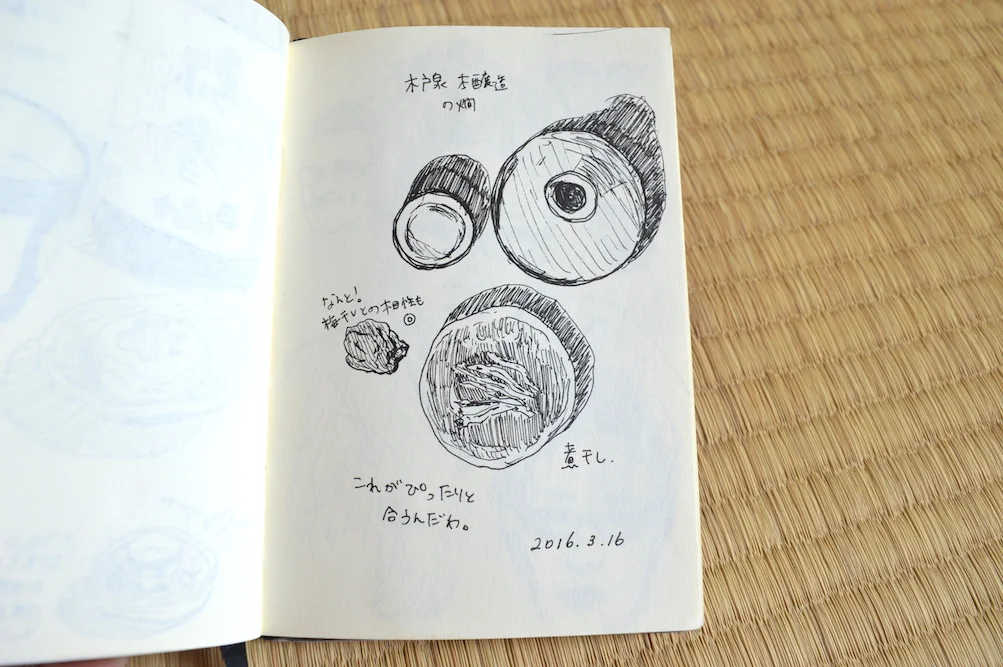 木戸泉 本醸造
の燗
なんと!
梅干しとの相性も
◎
煮干し.
これがぴったりと
合うんだわ。
2016.3.16